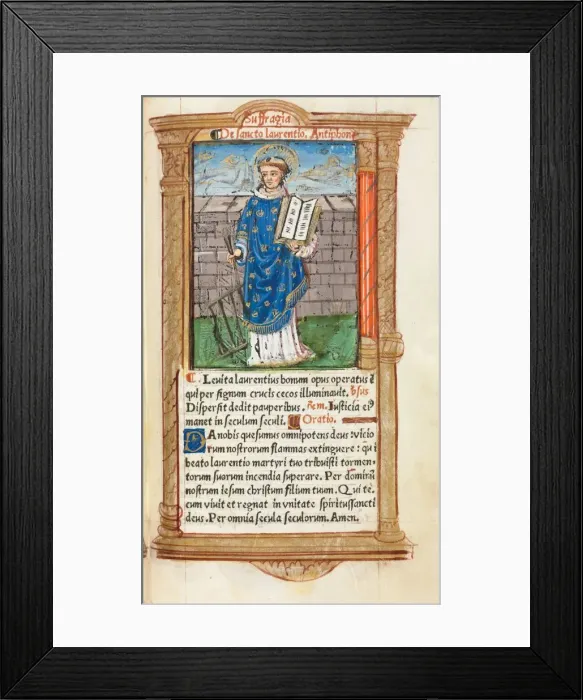 Suffragia
De sancto laurentio. Antiphona
Leuita laurentius bonum opus operatus ē
qui per signum crucis cecos illuminauit. v̄sus
Dispersit dedit pauperibus. r̄em. Iusticia eiꝰ
manet in seculum seculi. Oratio.
DA nobis quesumus omnipotens deus : vicio
rum nostrorum flammas extinguere : qui
beato laurentio martyri tuo tribuisti tormen-
torum suorum incendia superare. Per dominū
nostrum iesum christum filium tuum. Qui te-
cum viuit et regnat in vnitate spiritussancti
deus. Per omnia secula seculorum. Amen.